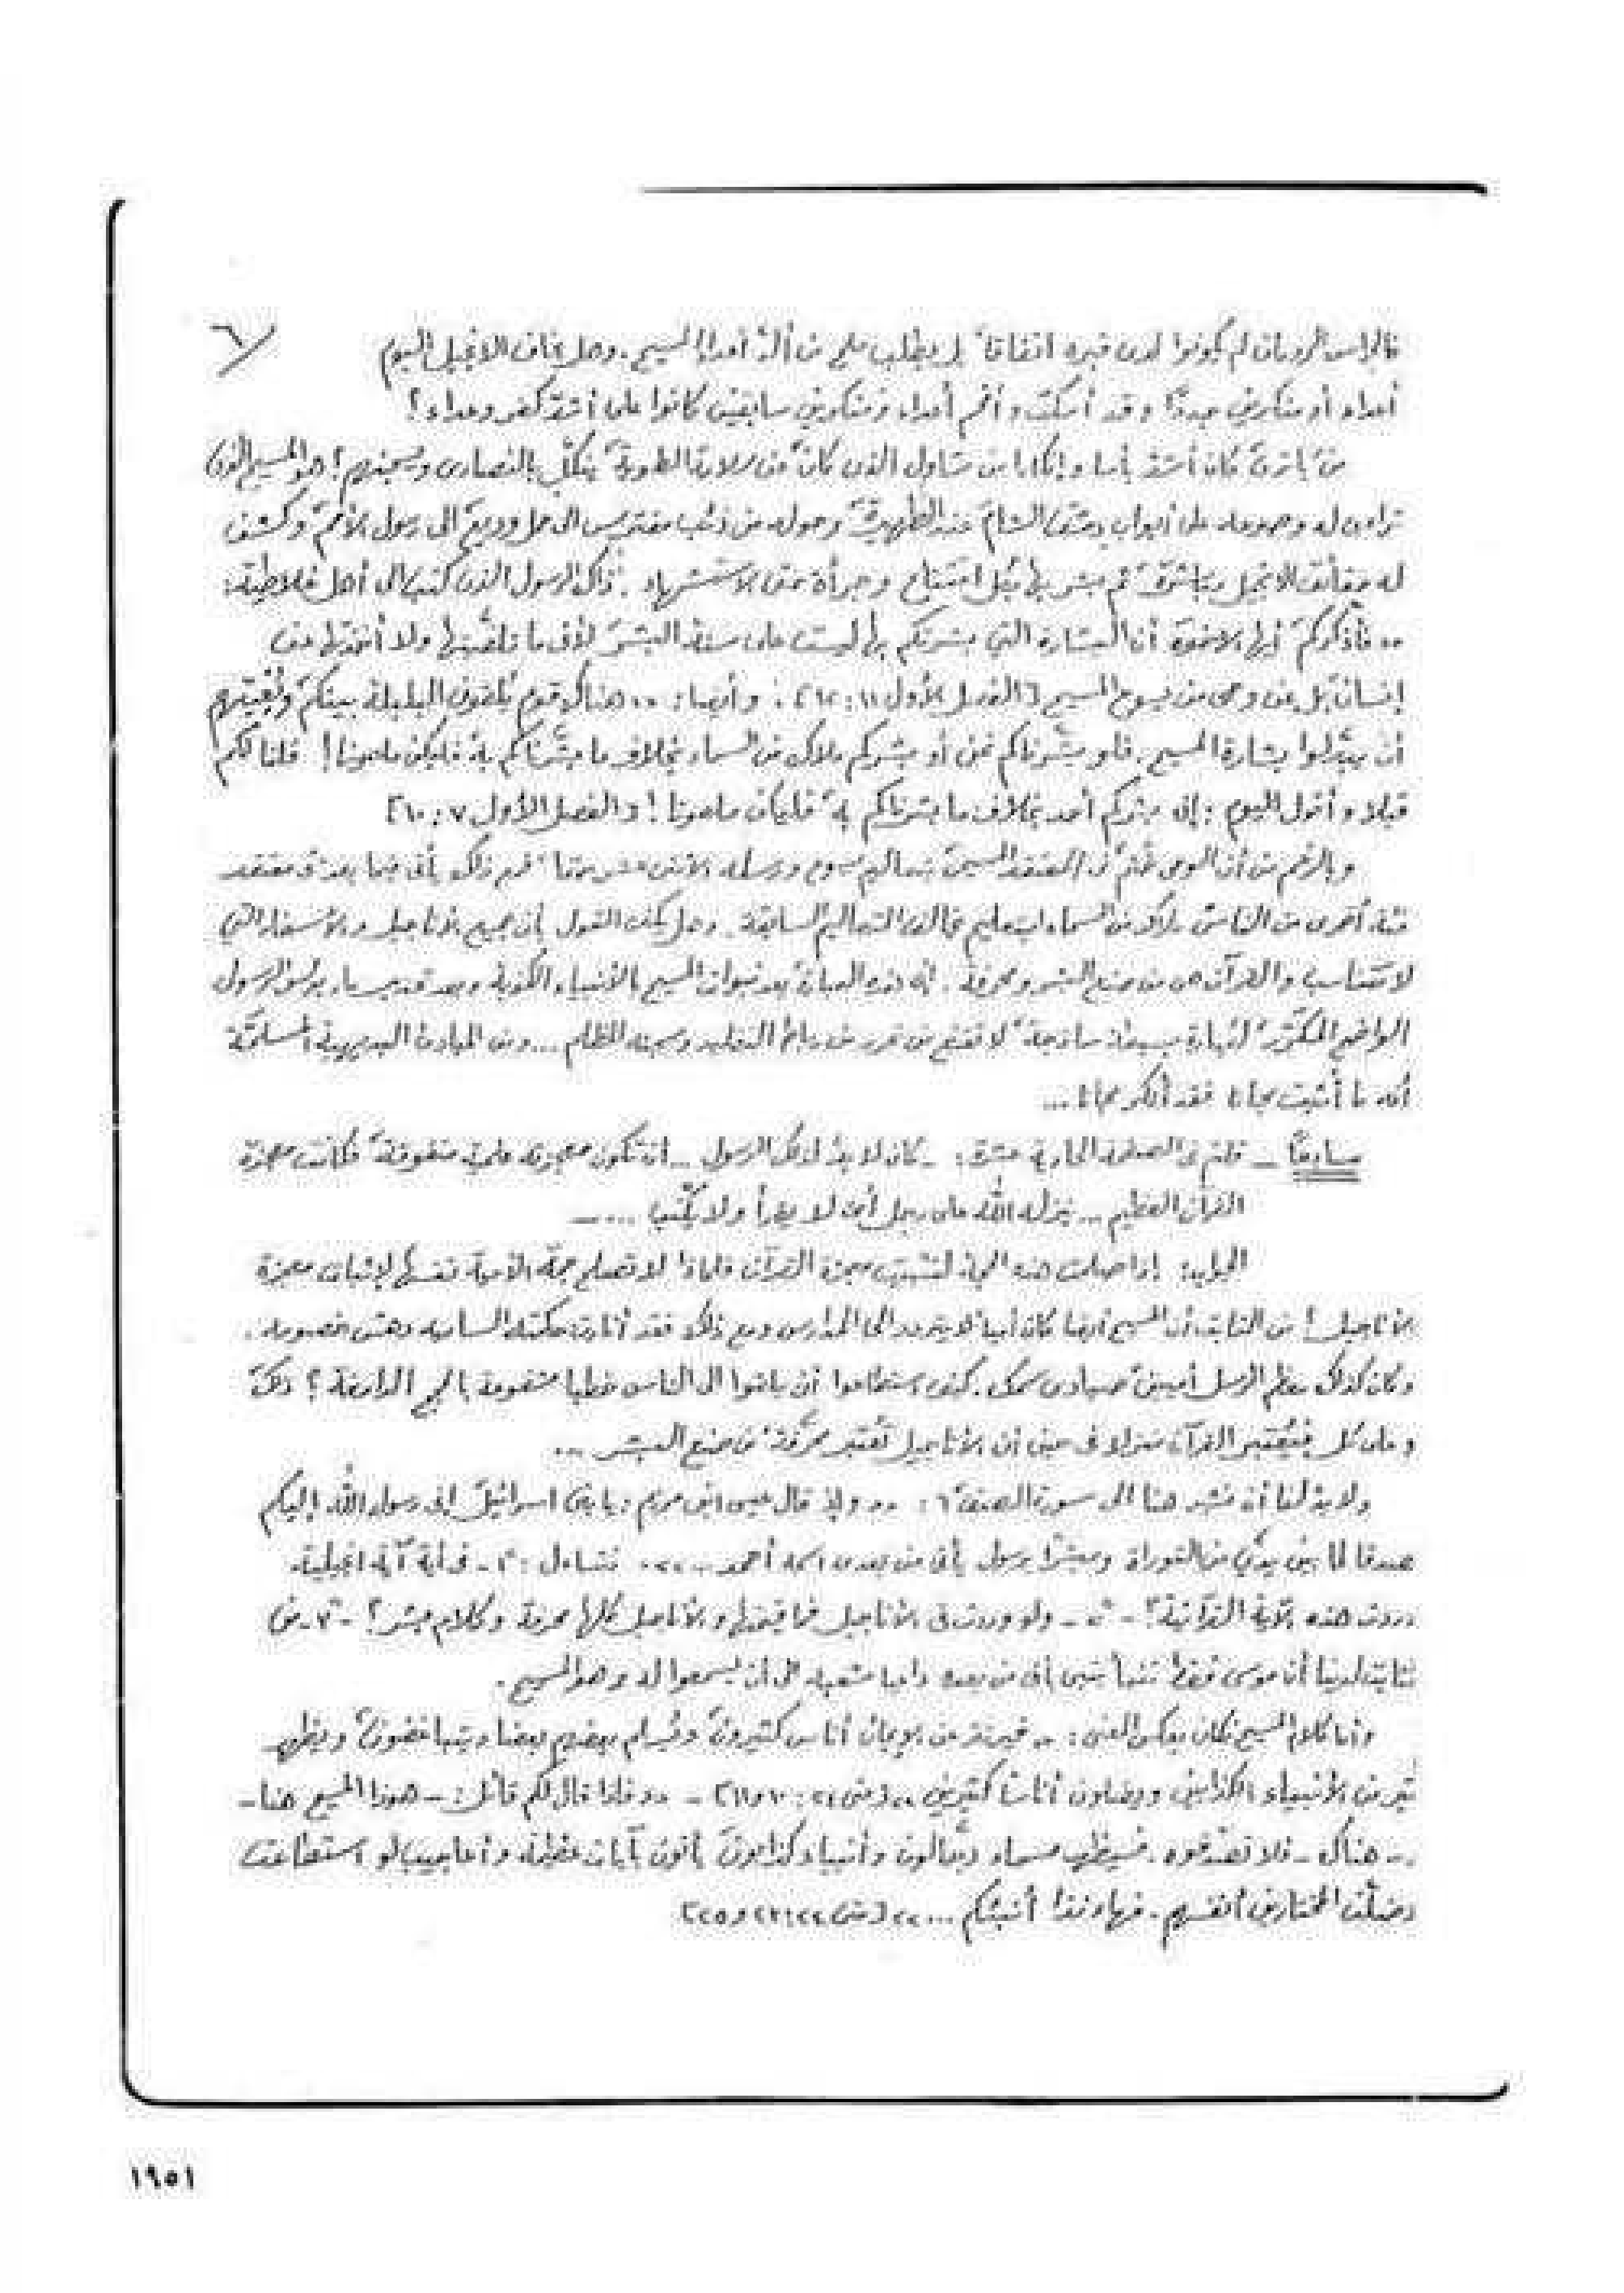 ٦
فالحراس الرومان لم يكونوا لدى قبره اتفاقاً بل بطلب ملح من ألدّ أعداء المسيح. وهل يخاف الانجيل اليوم
أعداء أو منكرين جدداً وقد أسكت وأفحم أعداء ومنكرين سابقين كانوا على أشدّ كفر وعداء؟
من كان أشد بأسا وإنكارا من شاول الذي كان ينكّل بالنصارى ويسجنهم؟ هو المسيح الذي
تراءى له وصرعه على أبواب دمشق الشام عند الظهيرة وحوله من ذئب مفترس الى حمل وديع الى رسول الأمم وكشف
له حقائق الانجيل مباشرة ثم بشر بها بكل اقتناع وجرأة حتى الاستشهاد. ذاك الرسول الذي كتب الى أهل غلاطية:
"فأذكركم أيها الاخوة أن البشارة التي بشرتكم بها ليست على سنة البشر لأني ما تلقّيتها ولا أخذتها عن
إنسان بل عن وحي من يسوع المسيح [الفصل الأول ١١: ١٢]. وأيضا: "هناك قوم يلقون البلبلة بينكم وبُغيتهم
أن يبدّلوا بشارة المسيح. فلو بشّرناكم نحن أو بشركم ملاك من السماء بخلاف ما بشّرناكم به فليكن ملعونا! قلنا لكم
قبلا وأقول اليوم: إن بشركم أحد بخلاف ما بشرناكم به فليكن ملعونا! [الفصل الأول ٧: ١٠]
وبالرغم من أن الوحي خُتم في المعتقد المسيحي بتعاليم يسوع ورسله الاثني عشر مع ذلك يأتي فيما بعد في معتقد
فئة أخرى من الناس ملاك من السماء بتعليم يخالف التعاليم السابقة. وهل يمكن القول بأن جميع الأناجيل والأسفار التي
لا تتناسب والقرآن هي من صنع البشر ومحرفة. بعد نبوات المسيح بالأنبياء الكذبة وبعد تحذير مار بولس الرسول
الواضح المكرّر لا تقنع من تحرر من رباط التقليد وسجنه المظلم ... ومن المبادئ البديهية المسلمّة
أنه ما أُثبت مجانا فقد أنكر مجانا ...
سادساً - قلتم في الصفحة الحادية عشرة: - كان لا بد لذلك الرسول ... أن تكون معجزته علمية متفوقة فكانت معجزة
القرآن العظيم ... نزله الله على رجل أمي لا يقرأ ولا يكتب ... -
الجواب: إذا صلحت هذه الحجة لتثبيت معجزة القرآن فلماذا لا تصلح حجّة الأمية نفسها لإثبات معجزة
الأناجيل! من الثابت أن المسيح أيضا كان أميا لا يتردد الى المدارس ومع ذلك فقد أثارت حكمته السامية دهش خصومه.
وكان كذلك معظم الرسل أميين صيادي سمك. كيف استطاعوا أن يلقوا الى الناس خطبا مشفوعة بالحجج الدامغة؟ ذلك
وعلى كل فيُعتبر القرآن منزلا في حين أن الأناجيل تُعتبر محرّفة من صنع البشر ...
ولا بد لنا أن نشير هنا الى سورة الصف ٦: "وإذ قال عيسى ابن مريم: يا بني اسرائيل إني رسول الله إليكم
مصدقا لما بين يديّ من التوراة ومبشّرا برسول يأتي من بعدي اسمه أحمد ...". نتساءل: ١- في أية آية انجيلية
وردت هذه الآية القرآنية؟ - ٢ - ولو وردت في الأناجيل فما قيمتها والأناجيل كلها محرفة وكلام بشر؟ - ٣ - من
الثابت لدينا أن موسى فقط تنبأ بنبي يأتي من بعده داعيا شعبه الى أن يسمعوا له وهو المسيح.
وأما كلام المسيح فكان بعكس المعنى: "فيرتد عن الإيمان أناس كثيرون ويُسلم بعضهم بعضا ويتباغضون ويظهر
كثير من الأنبياء الكذابين ويضلون أناسا كثيرين" [متى ٢٤: ١٠ و١١] - "فإذا قال لكم قائل: - هوذا المسيح هنا -
- هناك - فلا تصدّقوه. فسيظهر مسحاء دجّالون وأنبياء كذابون يأتون بآيات عظيمة وأعاجيب لو استطاعت
لضلّت المختارين أنفسهم. فها أنذا أنبئكم ..." [متى ٢٤: ٢٣ و٢٥]
١٩٥١